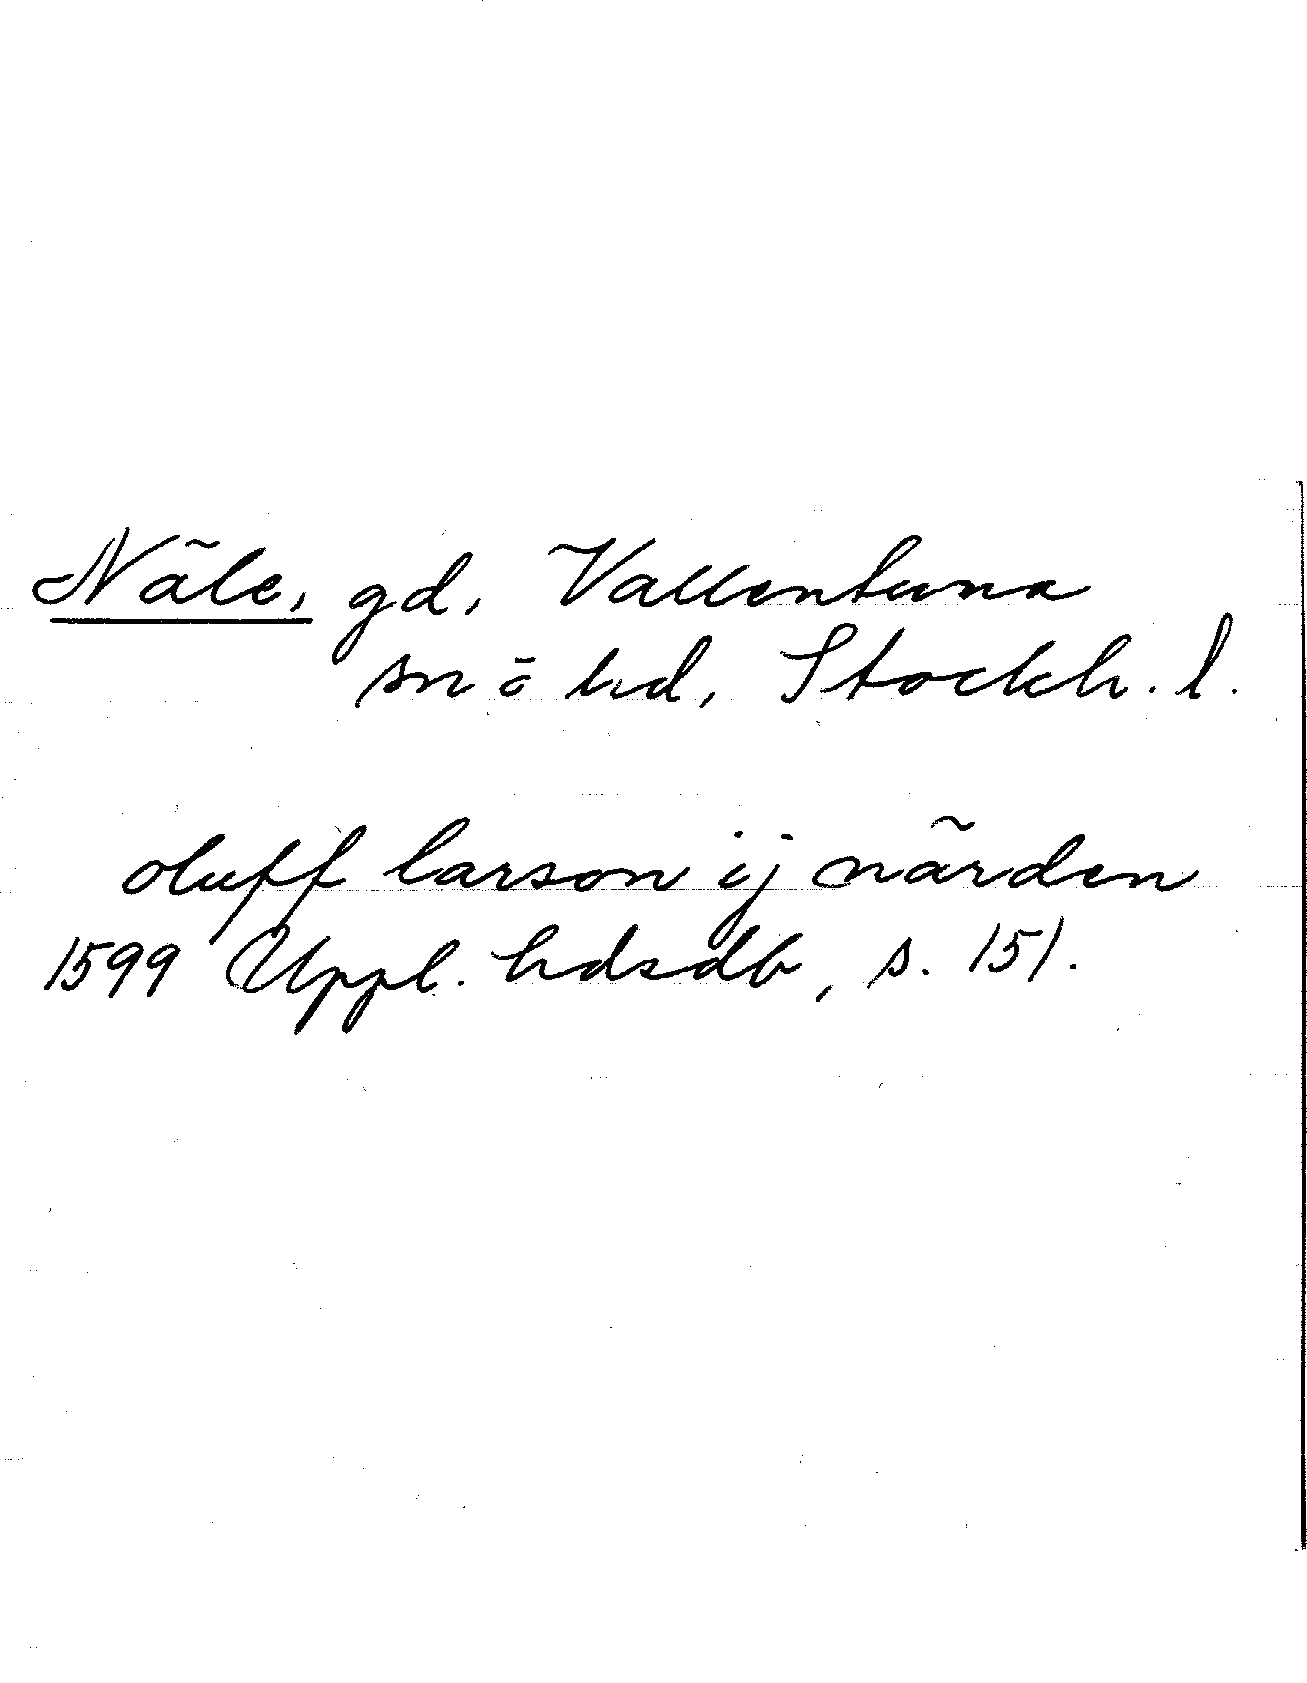 Näle, gd, Vallentuna
sn ö hd, Stockh. l.
oluff larson ij närden
1599 Uppl. hdsdb, s. 151.